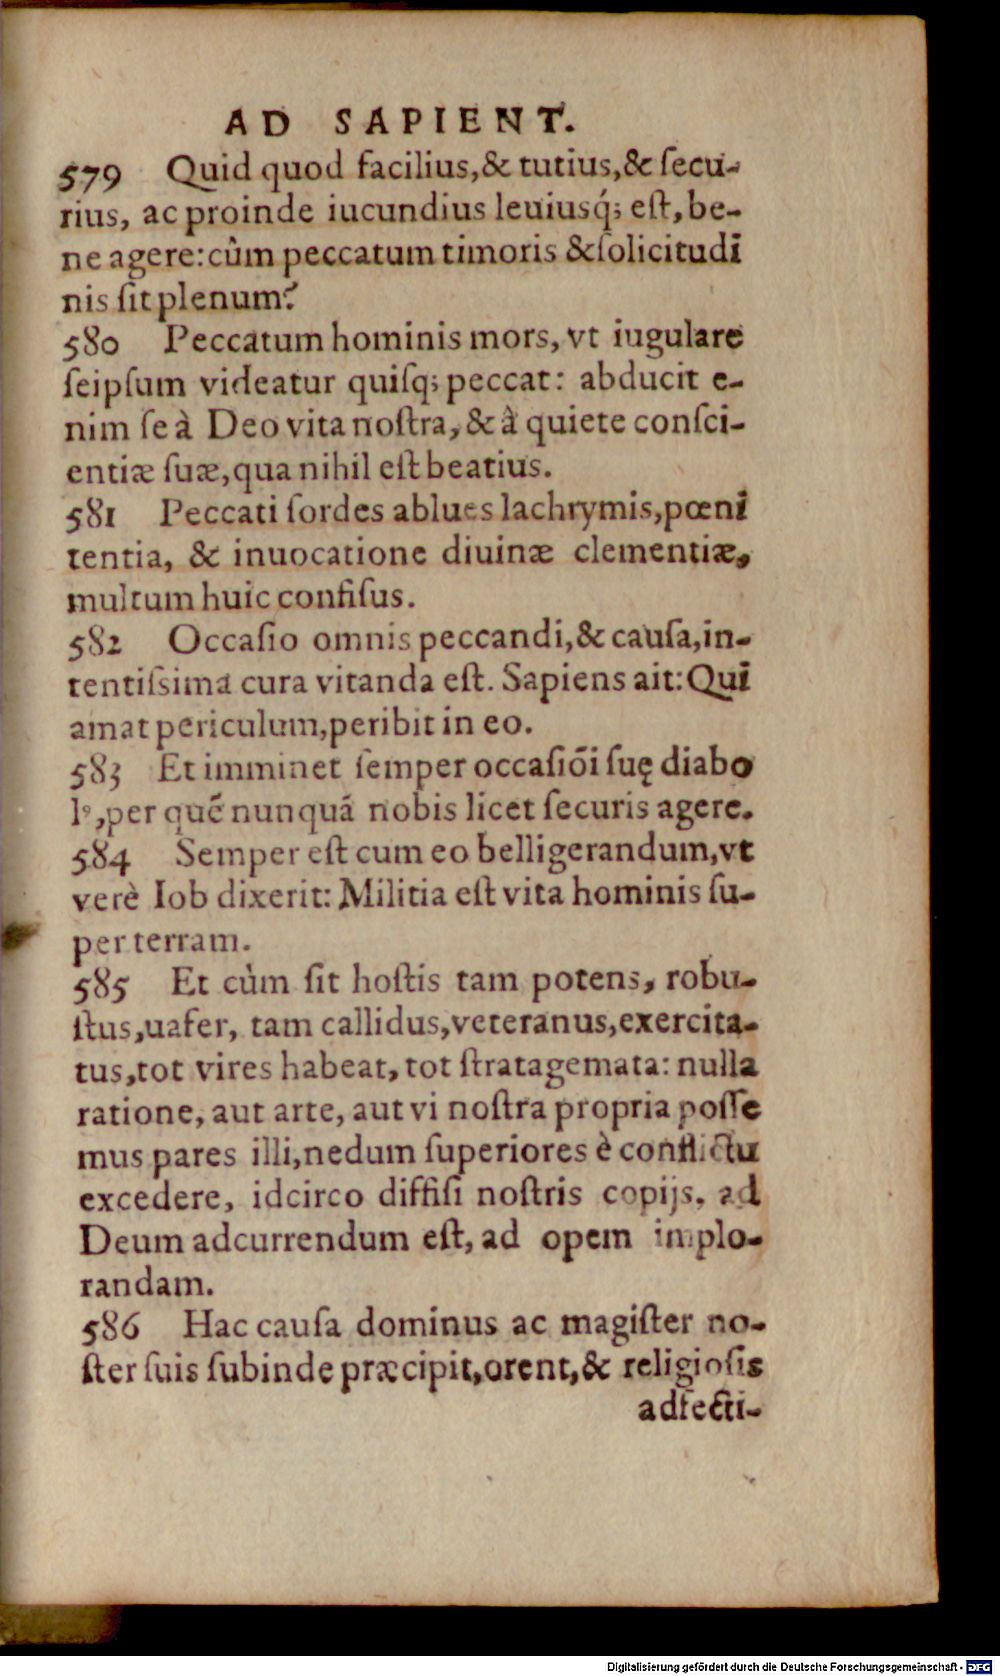 AD SAPIENT.
579 Quid quod facilius,& tutius,& ſecu-
rius, ac proinde iucundius leuiusq́; eſt, be-
ne agere: cûm peccatum timoris & ſolicitudi
nis ſit plenum?
580 Peccatum hominis mors, vt iugulare
ſeipſum videatur quiſq; peccat: abducit e-
nim ſe à Deo vita noſtra, & â quiete conſci-
entiæ ſuæ, qua nihil eſt beatius.
581 Peccati ſordes ablues lachrymis, pœni
tentia, & inuocatione diuinæ clementiæ,
multum huic confiſus.
582 Occaſio omnis peccandi, & cauſa, in-
tentiſsima cura vitanda eſt. Sapiens ait: Qui
amat periculum, peribit in eo.
583 Et imminet ſemper occaſiõi ſuę diabo
lꝰ, per quẽ nunquã nobis licet ſecuris agere.
584 Semper eſt cum eo belligerandum, vt
verè Iob dixerit: Militia eſt vita hominis ſu-
per terram.
585 Et cùm ſit hoſtis tam potens, robu-
ſtus, uafer, tam callidus, veteranus, exercita-
tus, tot vires habeat, tot ſtratagemata: nulla
ratione, aut arte, aut vi noſtra propria poſſe
mus pares illi, nedum ſuperiores è conflictu
excedere, idcirco diffiſi noſtris copijs, ad
Deum adcurrendum eſt, ad opem implo-
randam.
586 Hac cauſa dominus ac magiſter no-
ſter ſuis ſubinde præcipit, orent, & religioſis
adfecti-
Digitalisierung gefördert durch die Deutsche Forschungsgemeinschaft - DFG